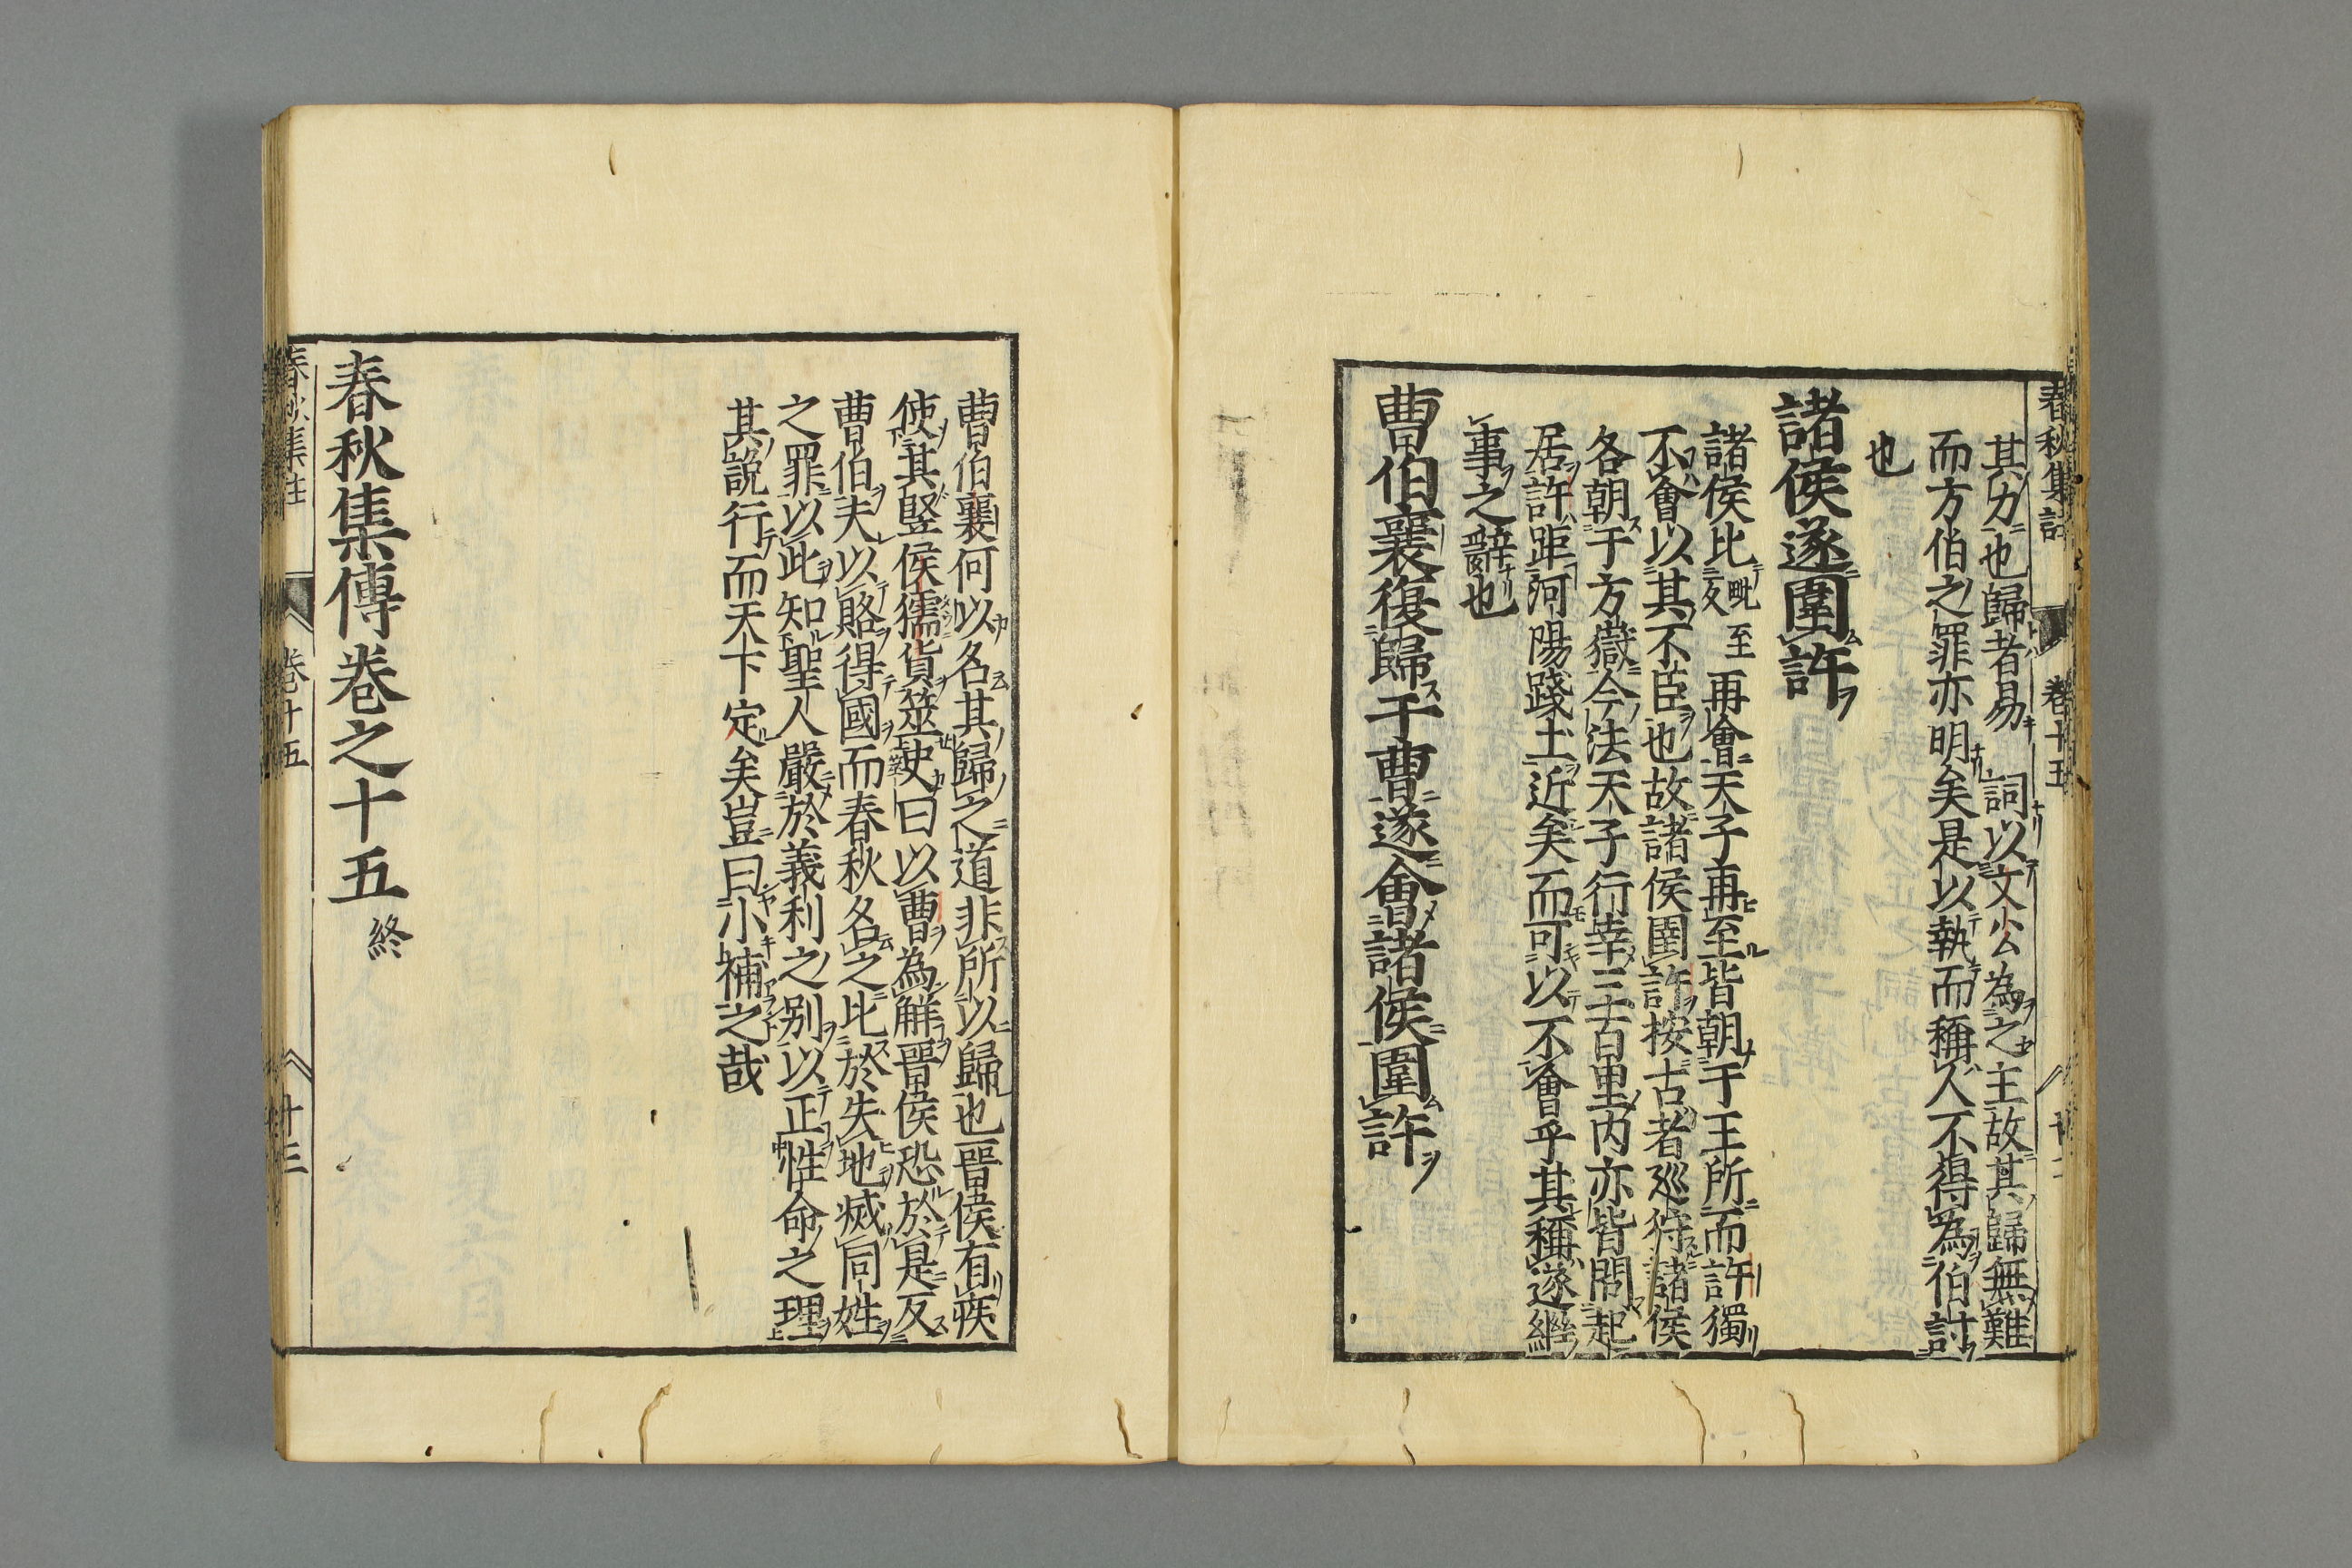 春秋集註 卷十五
其力也歸者易詞以文公為之主故其歸無難
而方伯之罪亦明矣是以執而稱人不得為伯討
也
諸侯遂圍許
諸侯比毗至反再會天子再至皆朝于王所而許獨
不會以其不臣也故諸侯圍許按古者廵狩諸侯
各朝于方嶽今法天子行幸三百里內亦皆問起
居許距河陽踐土近矣而可以不會乎其稱遂繼
事之辭也
曹伯襄復歸于曹遂會諸侯圍許
曹伯襄何以名其歸之道非所以歸也晉侯有疾
使其豎侯獳貨筮史曰以曹為解晉侯恐於是反
曹伯夫以賂得國而春秋名之比於失地滅同姓
之罪以此知聖人嚴於義利之别以正性命之理
其說行而天下定矣豈曰小補之哉
春秋集傳卷之十五終
春秋集註 卷十五 十三